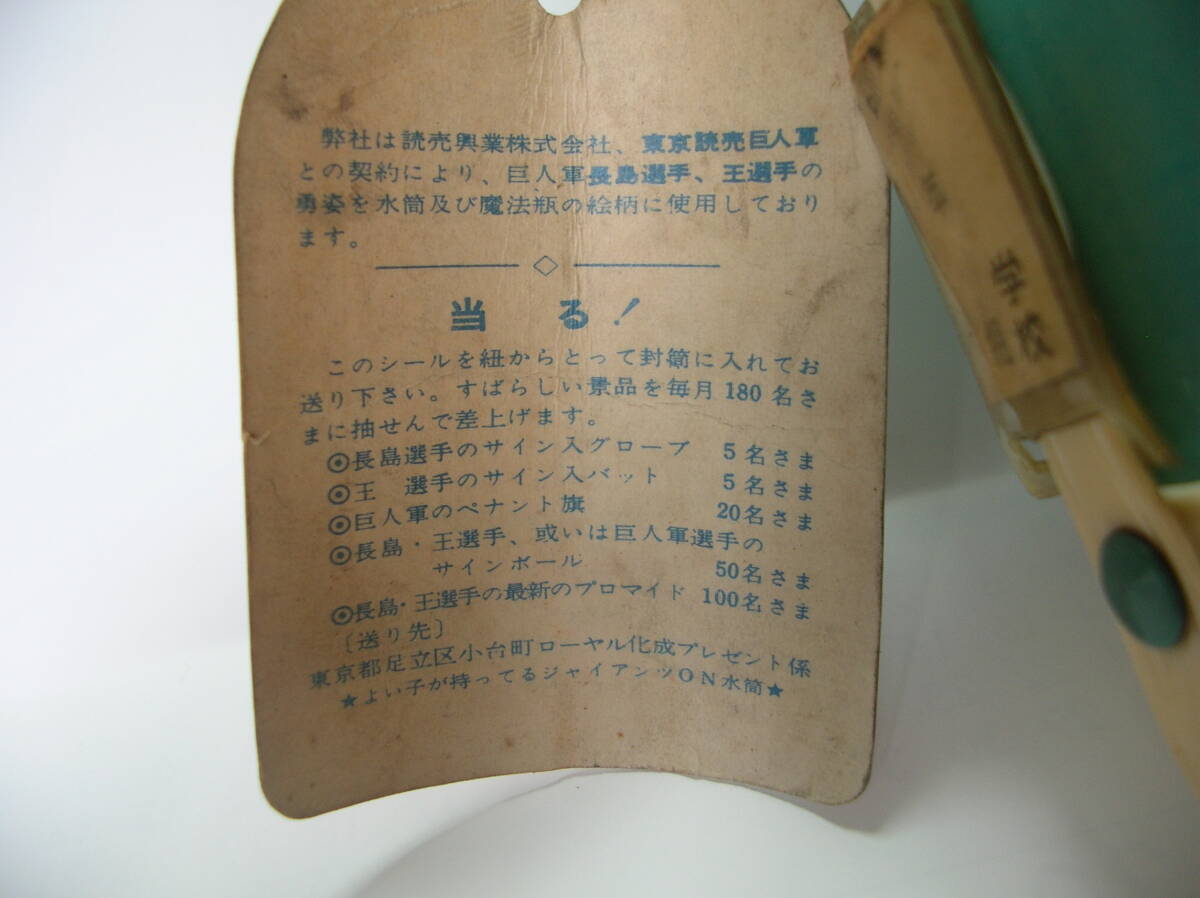 弊社は読売興業株式会社、東京読売巨人軍
との契約により、巨人軍長島選手、王選手の
勇姿を水筒及び魔法瓶の絵柄に使用しており
ます。
当る!
このシールを紐からとって封筒に入れてお
送り下さい。すばらしい景品を毎月180名さ
まに抽せんで差上げます。
◎長島選手のサイン入グローブ 5名さま
◎王 選手のサイン入バット 5名さま
◎巨人軍のペナント旗 20名さま
◎長島・王選手、或いは巨人軍選手の
サインボール 50名さま
◎長島・王選手の最新のブロマイド 100名さま
〔送り先〕
東京都足立区小台町ローヤル化成プレゼント係
★よい子が持ってるジャイアンツON水筒★
学校